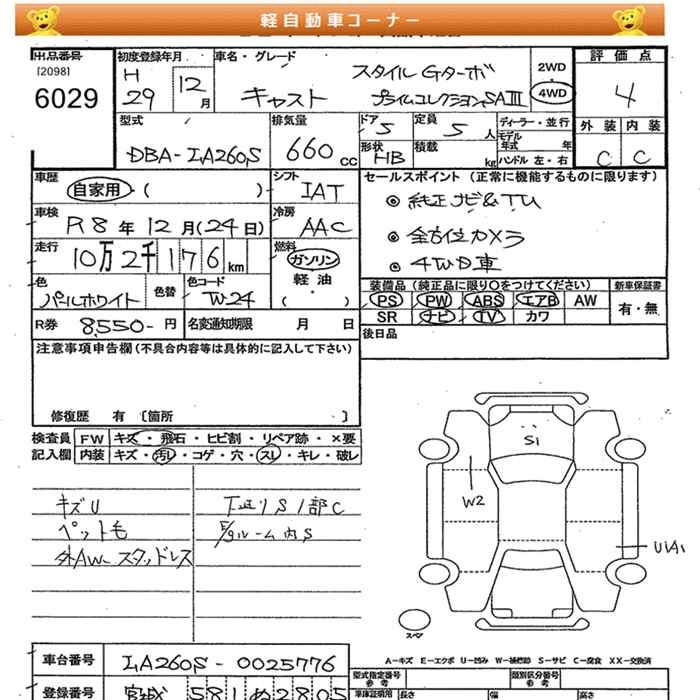 軽自動車コーナー
出品番号
[2098]
6029
初度登録年月
H 29 12 月
車名・グレード
キャスト
スタイル Gターボ
プライムコレクションSAⅢ
2WD
4WD
評価点
4
外装 内装
C C
型式
DBA-LA260S
排気量
660 cc
ドア 5
形状 HB
定員 5 人
積載 kg
ディーラー・並行
モデル年式 年
ハンドル 左・右
車歴
自家用 ( )
シフト
IAT
車検
R8 年 12 月 (24日)
冷房
AAC
走行
10万2千176 km
燃料
ガソリン
軽油
( )
色
パールホワイト
色替
色コード
W24
R券 8,550- 円
名変通知期限 月 日
セールスポイント (正常に機能するものに限ります)
◎ 純正ナビ&TV
◎ 全方位カメラ
◎ 4WD車
装備品 (純正品に限り○をつけてください)
PS PW ABS エアB AW
SR ナビ TV カワ
新車保証書
有・無
後日品
注意事項申告欄 (不具合内容等は具体的に記入して下さい)
修復歴 有 〔箇所 〕
検査員記入欄
FW キズ・飛石・ヒビ割・リペア跡・×要
内装 キズ・汚レ・コゲ・穴・スレ・キレ・破レ
キズU
ペット毛
外AW スタッドレス
下廻りS 1部C
E/gルーム内S
S1
W2
U1A1
スペア
A-キズ E-エクボ U-凹み W-補修跡 S-サビ C-腐食 XX-交換済
車台番号
LA260S-0025776
登録番号
宮城 581 ぬ 2805
型式指定番号
参考
類別区分番号
参考
車庫証明用
長さ 幅 高さ